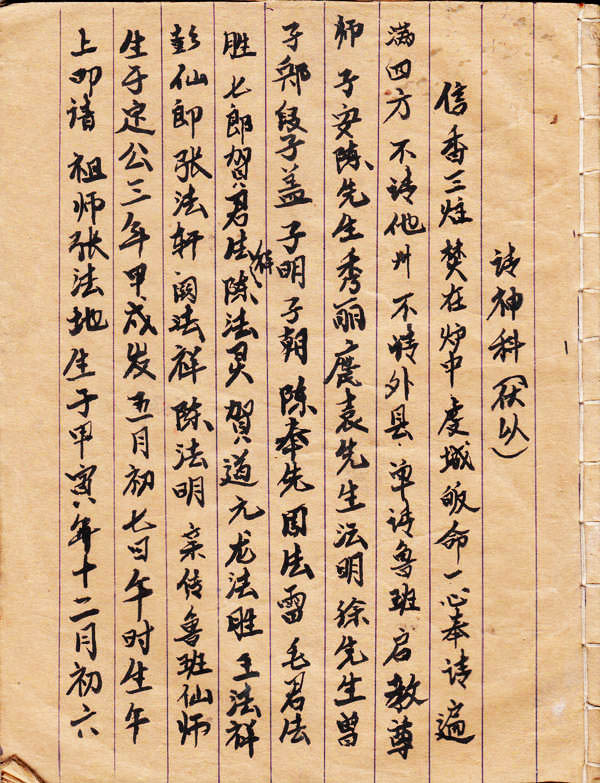 请神科（伏以）
信香三炷焚在炉中度城皈命一心奉请遍
满四方不请他州不情外县单请鲁班启教尊
师子安陈先生秀丽袁先生法明徐先生曾
子郑段子盖子明子朝陈奉先周法雷毛君法
胜七郎贺君法陈法灵贺道元龙法胜王法祥
彭仙郎张法轩阎法祥陈法明亲传鲁班仙师
生于定公三年甲戍岁五月初七日午时生午
上叩请祖师张法地生于甲寅年十二月初六